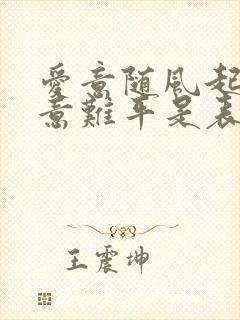 愛意随風起
意難平是表
王震坤